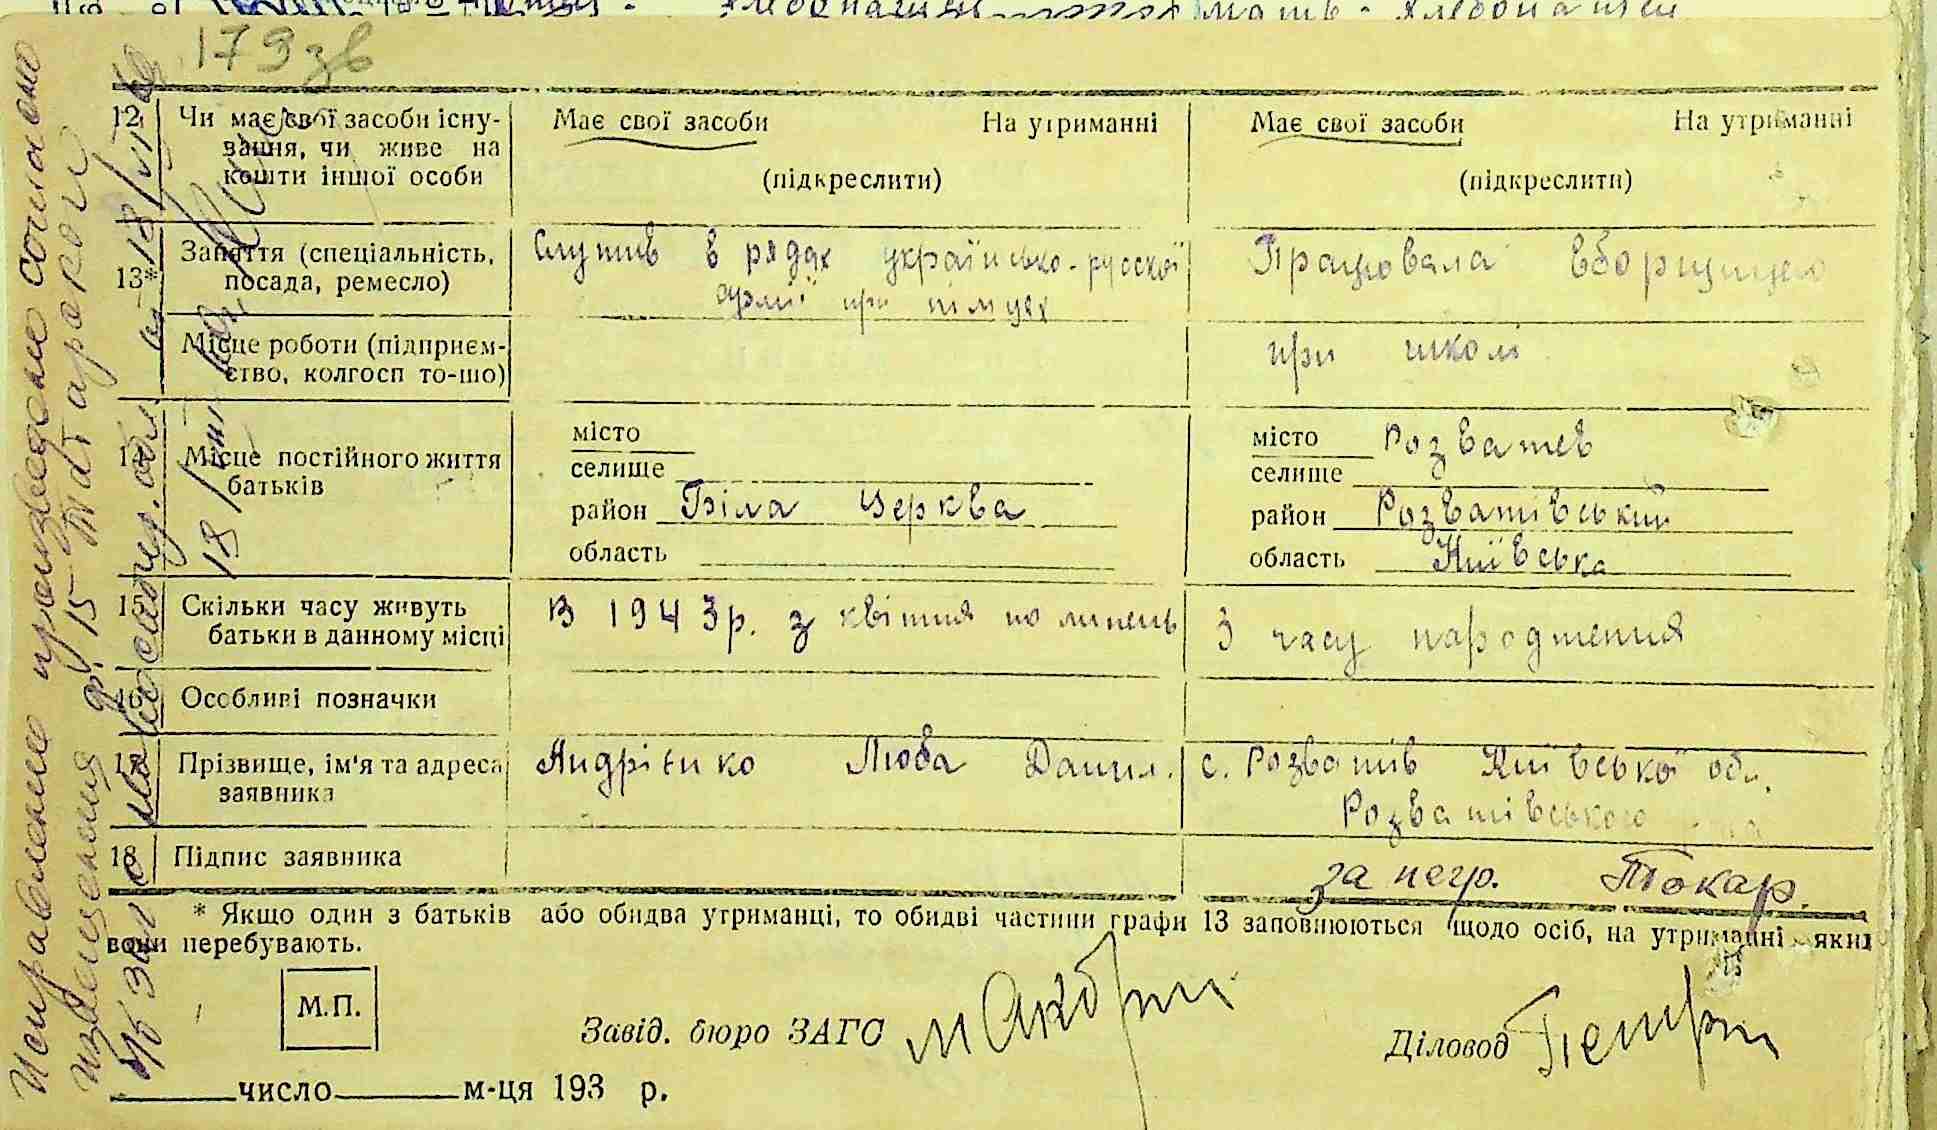 179 зв
12 Чи має свої засоби існу-
вання, чи живе на
кошти іншої особи
Має свої засоби На утриманні
(підкреслити)
Має свої засоби На утриманні
(підкреслити)
13* Заняття (спеціальність,
посада, ремесло)
Служив в рядах українсько-русскої
армії при німцях
Працювала вборщицею
Місце роботи (підприєм-
ство, колгосп то-що)
при школі
14 Місце постійного життя
батьків
місто
селище
район Біла Церква
область
місто Розватев
селище
район Розватівський
область Київська
15 Скільки часу живуть
батьки в данному місці
В 1943р. з квітня по липень
З часу народження
16 Особливі позначки
17 Прізвище, ім'я та адреса
заявника
Андрієнко Люба Данил.
с. Розватів Київської обл.
Розватівського
18 Підпис заявника
за негр. Токар.
* Якщо один з батьків або обидва утриманці, то обидві частини графи 13 заповнюються щодо осіб, на утриманні яких
вони перебувають.
М.П.
Завід. бюро ЗАГС
Діловод
число м-ця 193 р.
Исправление произведено согласно
извещения